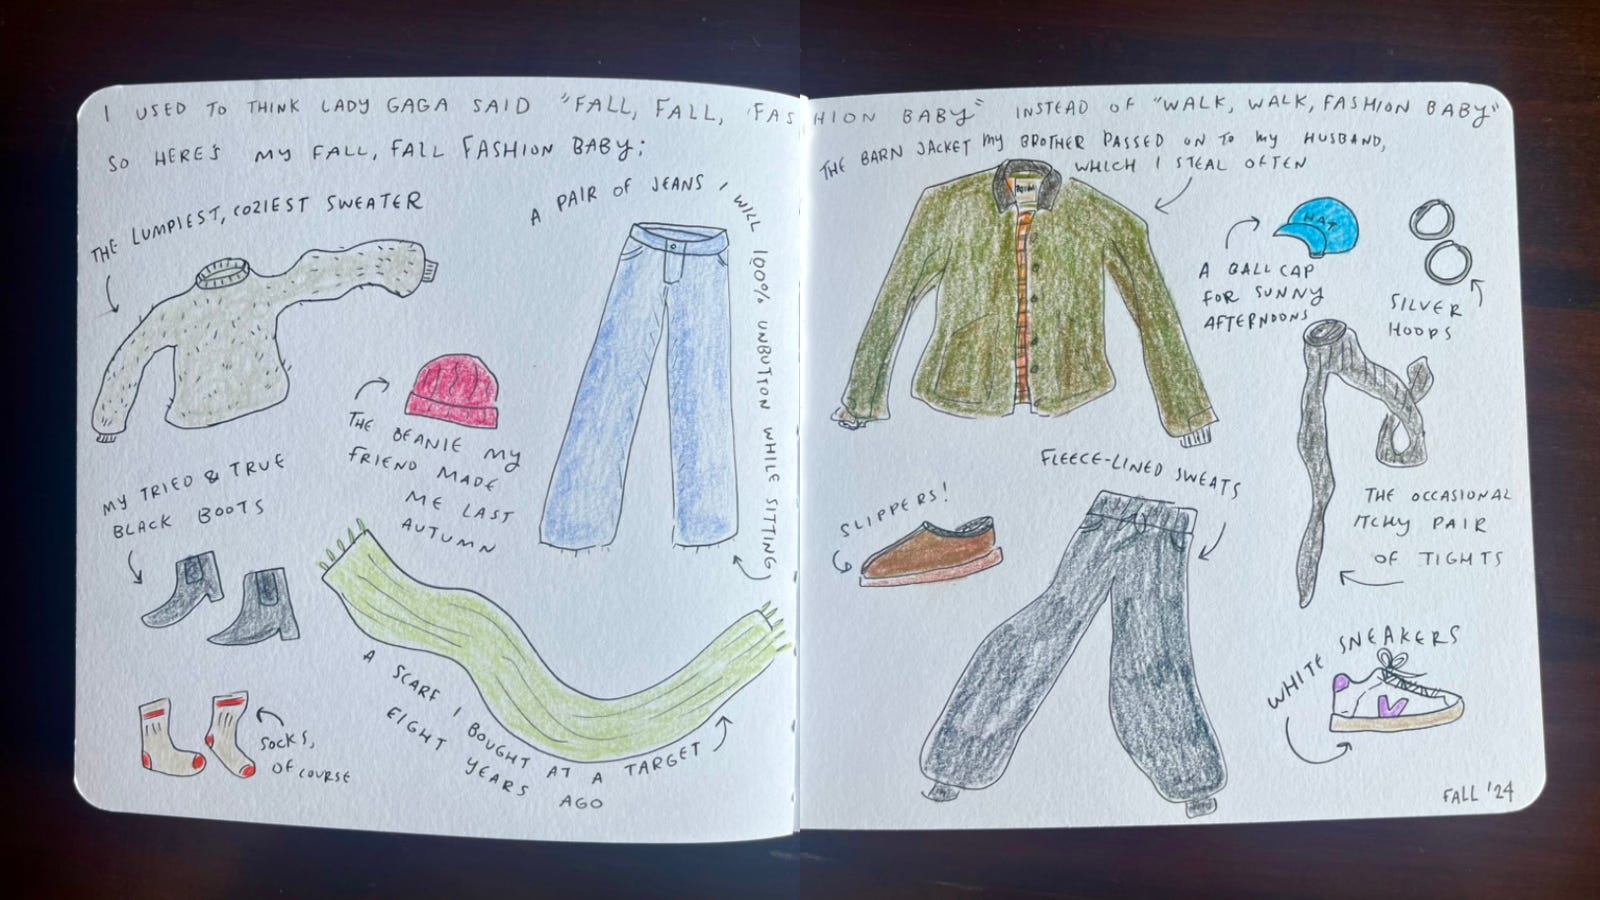 I USED TO THINK LADY GAGA SAID "FALL, FALL, FASHION BABY" INSTEAD OF "WALK, WALK, FASHION BABY"
SO HERE'S MY FALL, FALL FASHION BABY:
THE LUMPIEST, COZIEST SWEATER
A PAIR OF JEANS I WILL 100% UNBUTTON WHILE SITTING
THE BEANIE MY
FRIEND MADE
ME LAST
AUTUMN
MY TRIED & TRUE
BLACK BOOTS
SOCKS,
OF COURSE
A SCARF I BOUGHT AT A TARGET
EIGHT YEARS AGO
THE BARN JACKET MY BROTHER PASSED ON TO MY HUSBAND,
WHICH I STEAL OFTEN
HAT
A BALL CAP
FOR SUNNY
AFTERNOONS
SILVER
HOOPS
FLEECE-LINED SWEATS
SLIPPERS!
THE OCCASIONAL
ITCHY PAIR
OF TIGHTS
WHITE SNEAKERS
FALL '24